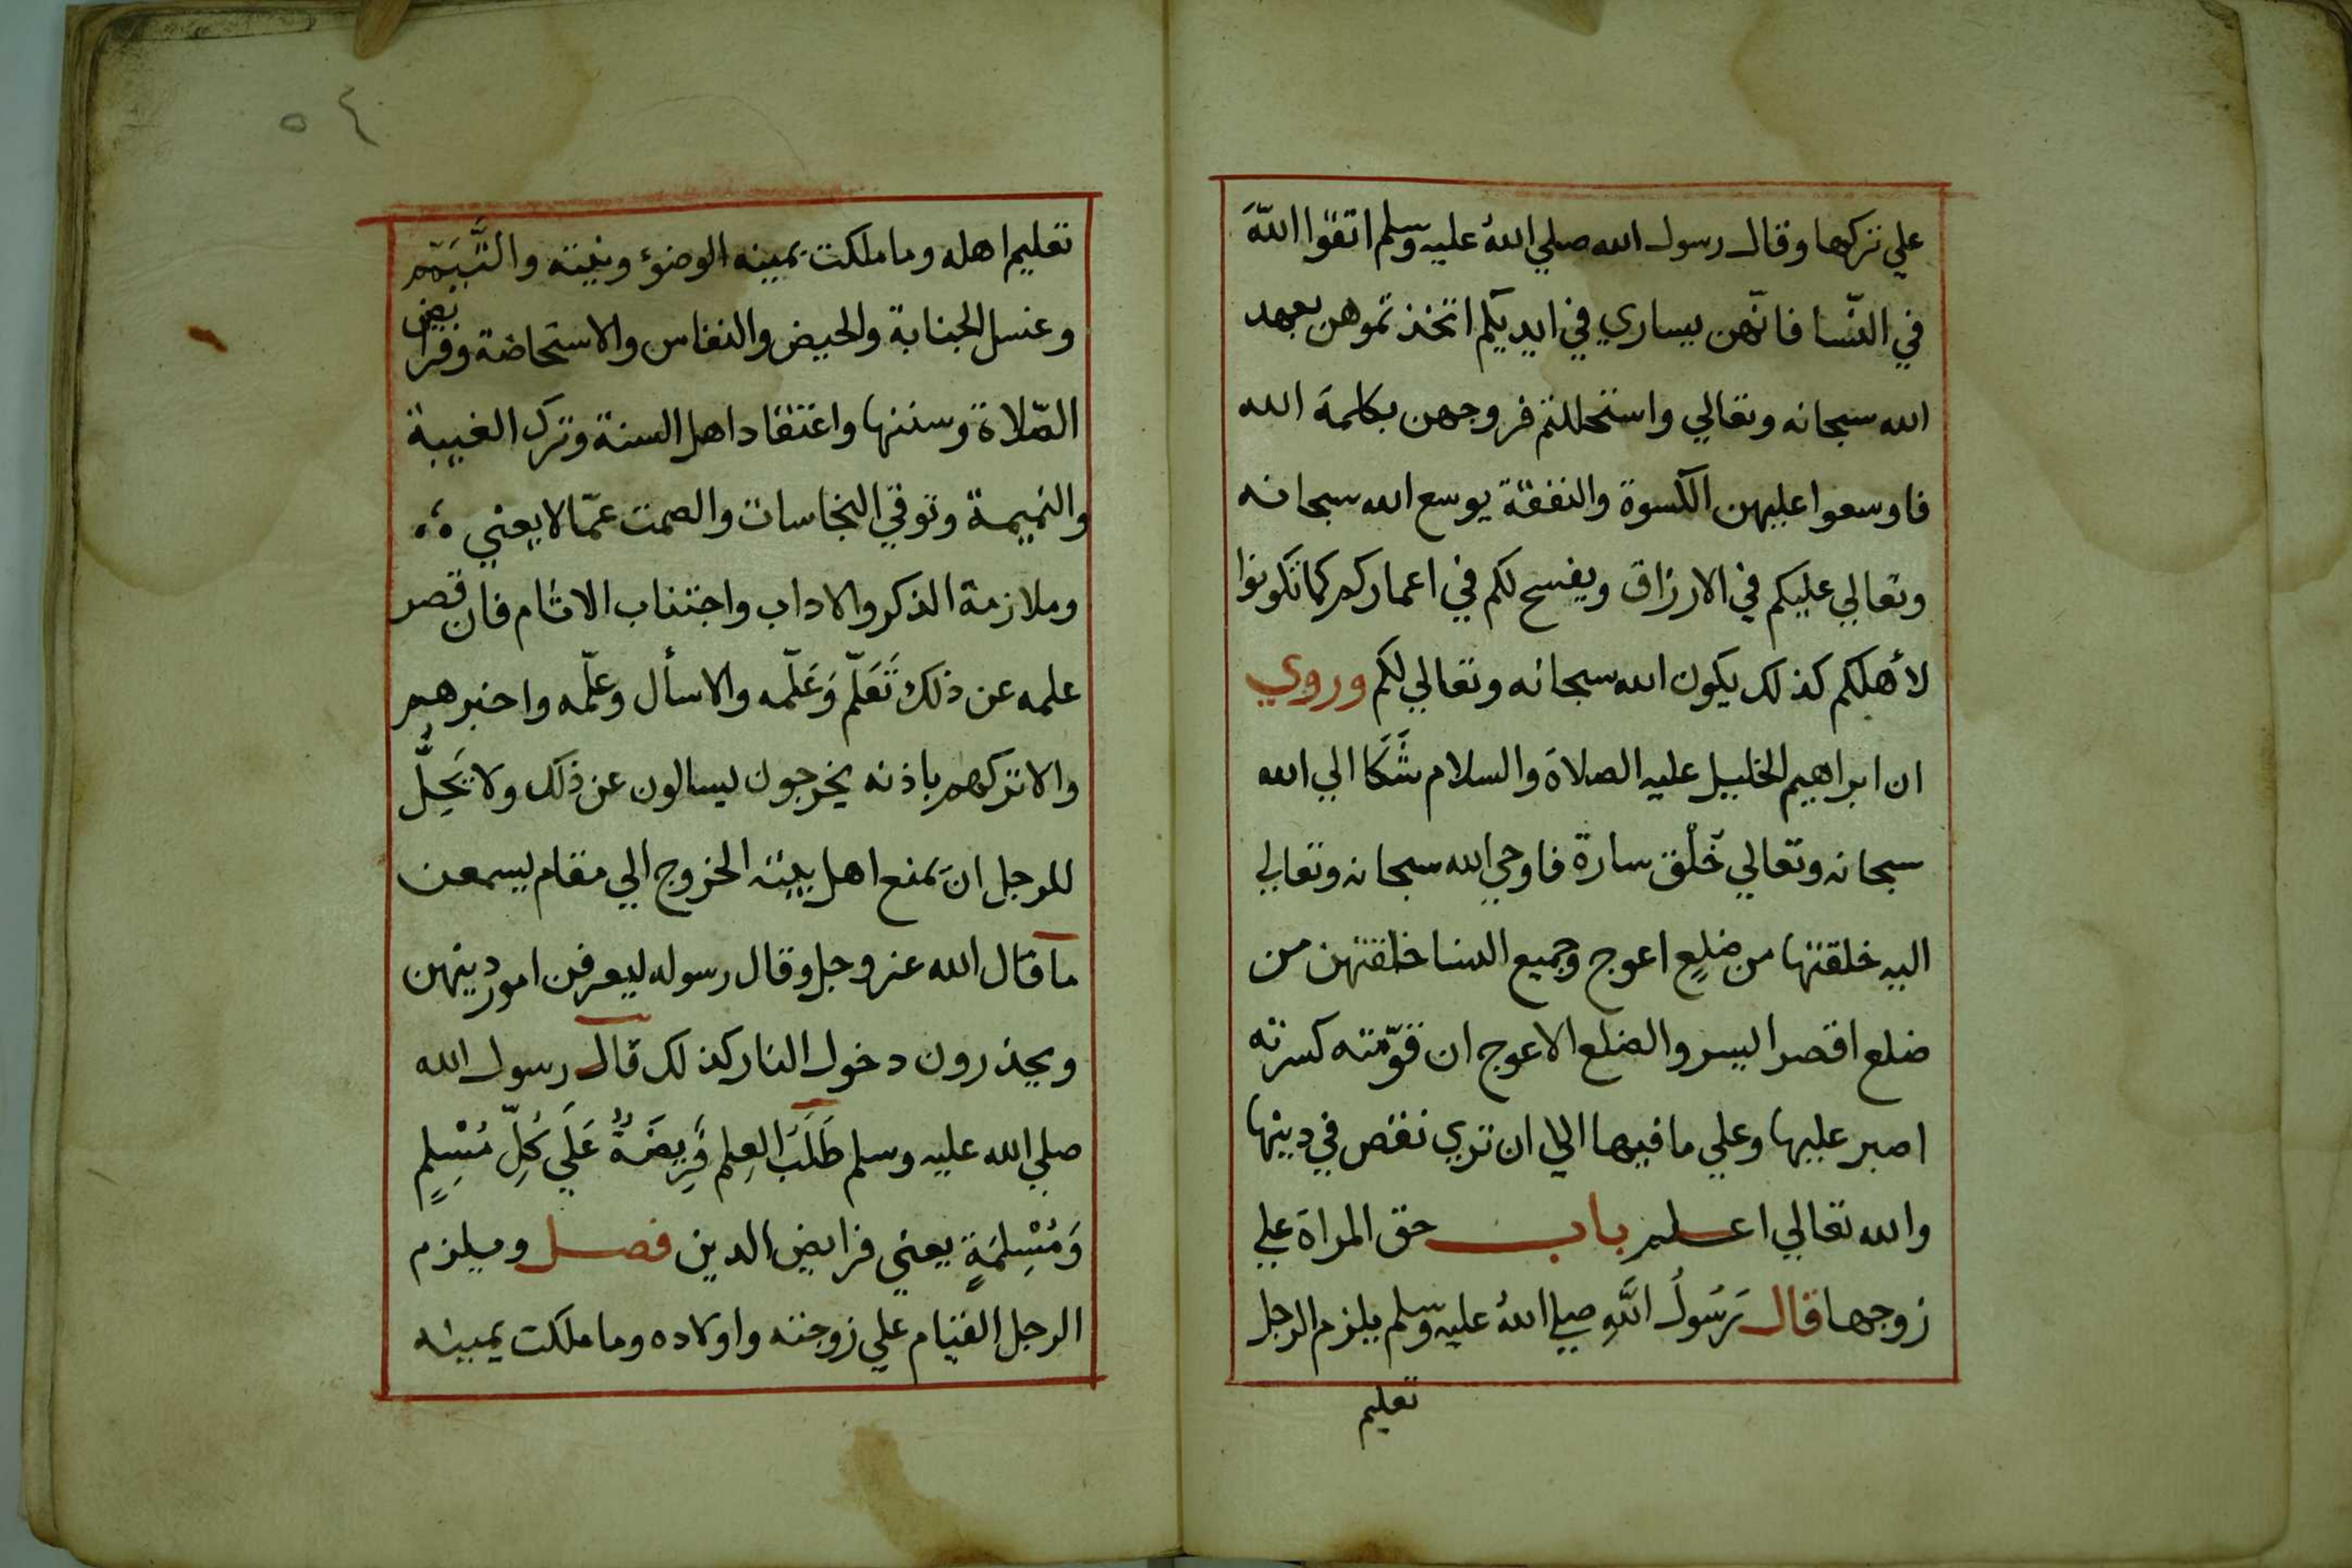 علي تركها وقال رسول الله صلي اللهُ عليه وسلم اتقوا اللهَ
في النّسا فانّهن يساري في ايديكم اتخذتموهن بعهد
الله سبحانه وتعالي واستحللتم فروجهن بكلمة الله
فاوسعوا عليهن الكسوة والنفقة يوسع الله سبحانه
وتعالي عليكم في الارزاق ويفسح لكم في اعماركم كما تكونوا
لأهلكم كذلك يكون الله سبحانه وتعالي لكم وروي
ان ابراهيم الخليل عليه الصلاة والسلام شَكَا الي الله
سبحانه وتعالي خُلْق سارة فاوحي الله سبحانه وتعالي
اليه خلقتها من ضلعٍ اعوج وجميع النسا خلقتهن من
ضلع اقصر اليسر والضلع الاعوج ان قوّمته كسرته
اصبر عليها وعلي ما فيها الي ان تري نقص في دينها
والله تعالي اعلم باب حق المراة علي
زوجها قال رَسُولُ اللَّهِ صلي اللهُ عليه وسلم يلزم الرجل
تعليم
٥٤
تعليم اهله وما ملكت يمينه الوضوء ونيته والتَّيَمّم
وغسل الجنابة والحيض والنفاس والاستحاضة وفرايض
الصّلاة وسننها واعتقاد اهل السنة وترك الغيبة
والنميمة وتوقي النجاسات والصمت عمّا لا يعني
وملازمة الذكر والاداب واجتناب الاثام فان قصر
علمه عن ذلك تَعَلّم وَعَلّمه والا سأل وعلّمه واخبرهم
والا تركهم باذنه يخرجون ليسالون عن ذلك ولا يَحِلُّ
للرجل ان يمنع اهل بيته الخروج الي مقام يسمعن
ما قال الله عز وجل وقال رسوله ليعرفن امور دينهن
ويحذرون دخول النار كذلك قال رسول الله
صلي الله عليه وسلم طَلَبُ العِلم فَرِيضَةٌ عَلَي كُلِّ مُسْلِمٍ
وَمُسْلِمَةٍ يعني فرايض الدين فصل ويلزم
الرجل القيام علي زوجته واولاده وما ملكت يمينه